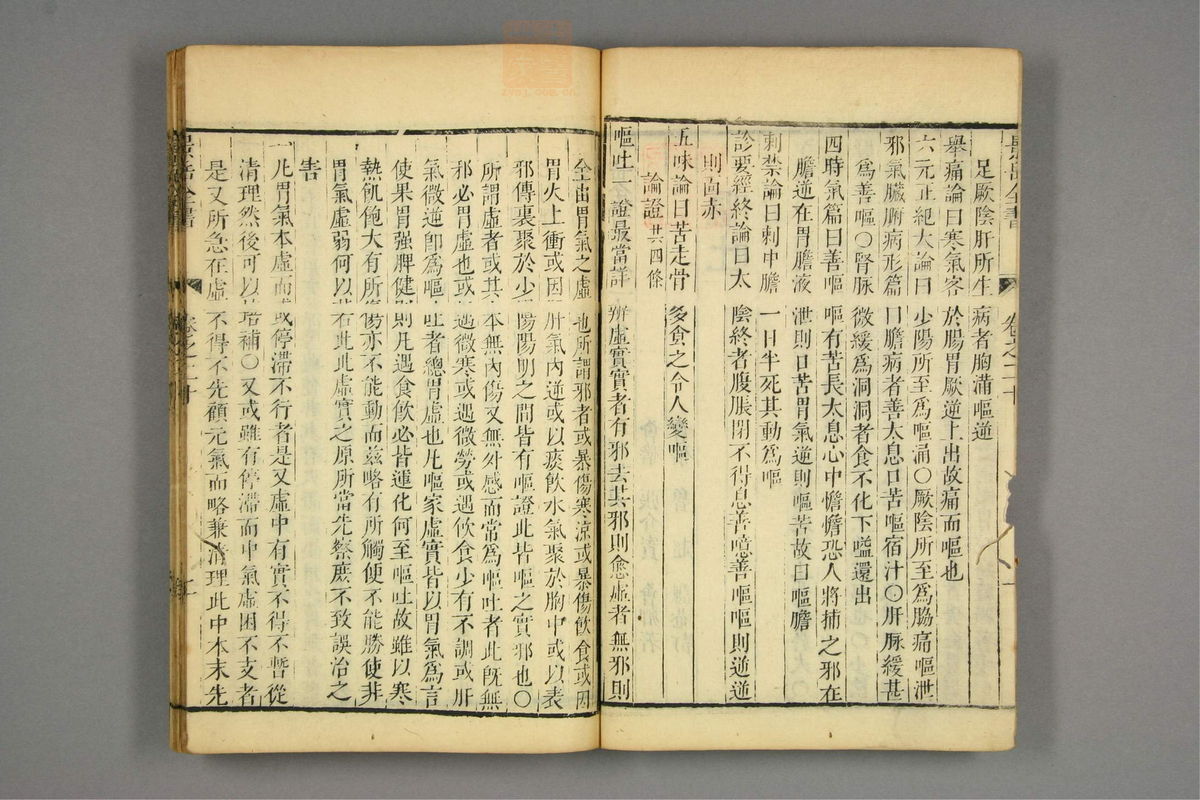 足厥陰肝所生病者胸滿嘔逆
舉痛論曰寒氣客於腸胃厥逆上出故痛而嘔也
六元正紀大論曰少陽所至爲嘔涌○厥陰所至爲脇痛嘔泄
邪氣臟腑病形篇曰膽病者善太息口苦嘔宿汁○肝脉緩甚
爲善嘔○腎脉微緩爲洞洞者食不化下嗌還出
四時氣篇曰善嘔嘔有苦長太息心中憺憺恐人將捕之邪在
膽逆在胃膽液泄則口苦胃氣逆則嘔苦故曰嘔膽
刺禁論曰刺中膽一日半死其動爲嘔
診要經終論曰太陰終者腹脹閉不得息善噫善嘔嘔則逆逆
則面赤
五味論曰苦走骨多食之令人變嘔
論證共四條
嘔吐一證最當詳辨虛實實者有邪去其邪則愈虛者無邪則
全由胃氣之虛也所謂邪者或暴傷寒涼或暴傷飲食或因
胃火上衝或因肝氣內逆或以痰飲水氣聚於胸中或以表
邪傳裏聚於少陽陽明之間皆有嘔證此皆嘔之實邪也○
所謂虛者或其本無內傷又無外感而常爲嘔吐者此旣無
邪必胃虛也或遇微寒或遇微勞或遇飲食少有不調或肝
氣微逆卽爲嘔吐者總胃虛也凡嘔家虛實皆以胃氣爲言
使果胃強脾健則凡遇食飲必皆運化何至嘔吐故雖以寒
熱飢飽大有所傷亦不能動而茲略有所觸便不能勝使非
胃氣虛弱何以若此此虛實之原所當先察庶不致誤治之
害
一凡胃氣本虛而或停滯不行者是又虛中有實不得不暫從
清理然後可以培補○又或雖有停滯而中氣虛困不支者
是又所急在虛不得不先顧元氣而略兼清理此中本末先
景岳全書
卷之二十